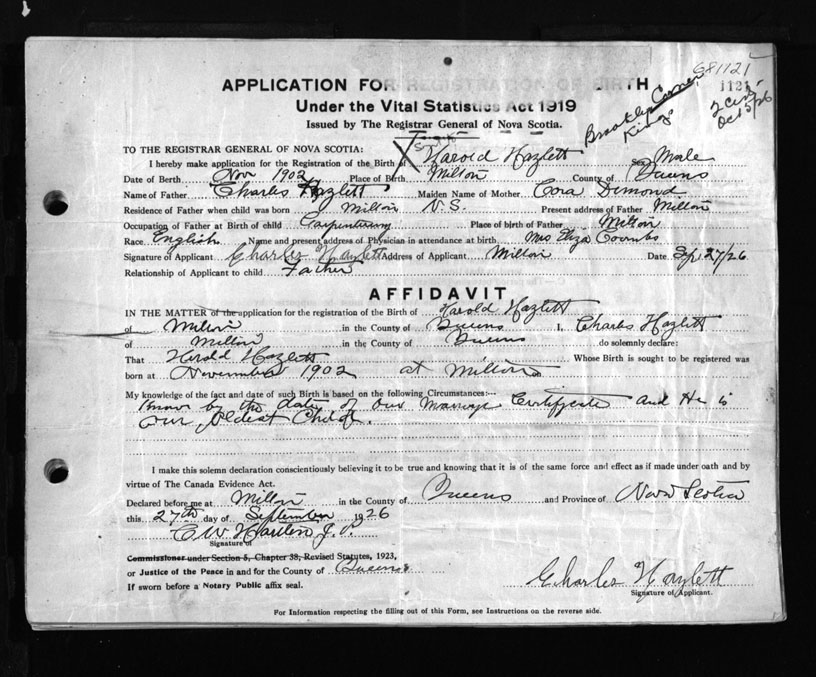 681121
APPLICATION FOR REGISTRATION OF BIRTH
1121
Under the Vital Statistics Act 1919
Brooklyn Corner
Kings
Oct 5/26
Issued by The Registrar General of Nova Scotia.
TO THE REGISTRAR GENERAL OF NOVA SCOTIA:
I hereby make application for the Registration of the Birth of Harold Hazlett Sex Male
Date of Birth Nov 1902 Place of Birth Milton County of Queens
Name of Father Charles Hazlett Maiden Name of Mother Cora Dimond
Residence of Father when child was born Milton N.S. Present address of Father Milton
Occupation of Father at Birth of child Carpentering Place of birth of Father Milton
Race English Name and present address of Physician in attendance at birth Mrs Eliza Coombs
Signature of Applicant Charles Hazlett Address of Applicant Milton Date Sep 27/26
Relationship of Applicant to child Father
AFFIDAVIT
IN THE MATTER of the application for the registration of the Birth of Harold Hazlett
of Milton in the County of Queens I, Charles Hazlett
of Milton in the County of Queens do solemnly declare:
That Herold Hazlett Whose Birth is sought to be registered was
born at November 1902 at Milton
My knowledge of the fact and date of such Birth is based on the following Circumstances:—
Know by the date of our Marriage Certificate and He is
our oldest Child.
I make this solemn declaration conscientiously believing it to be true and knowing that it is of the same force and effect as if made under oath and by
virtue of The Canada Evidence Act.
Declared before me at Milton in the County of Queens and Province of Nova Scotia
this 27th day of September 1926
C.W. J.P.
Signature of
Commissioner under Section 5, Chapter 38, Revised Statutes, 1923,
or Justice of the Peace in and for the County of Queens
If sworn before a Notary Public affix seal.
Charles Hazlett
Signature of Applicant.
For Information respecting the filling out of this Form, see Instructions on the reverse side.